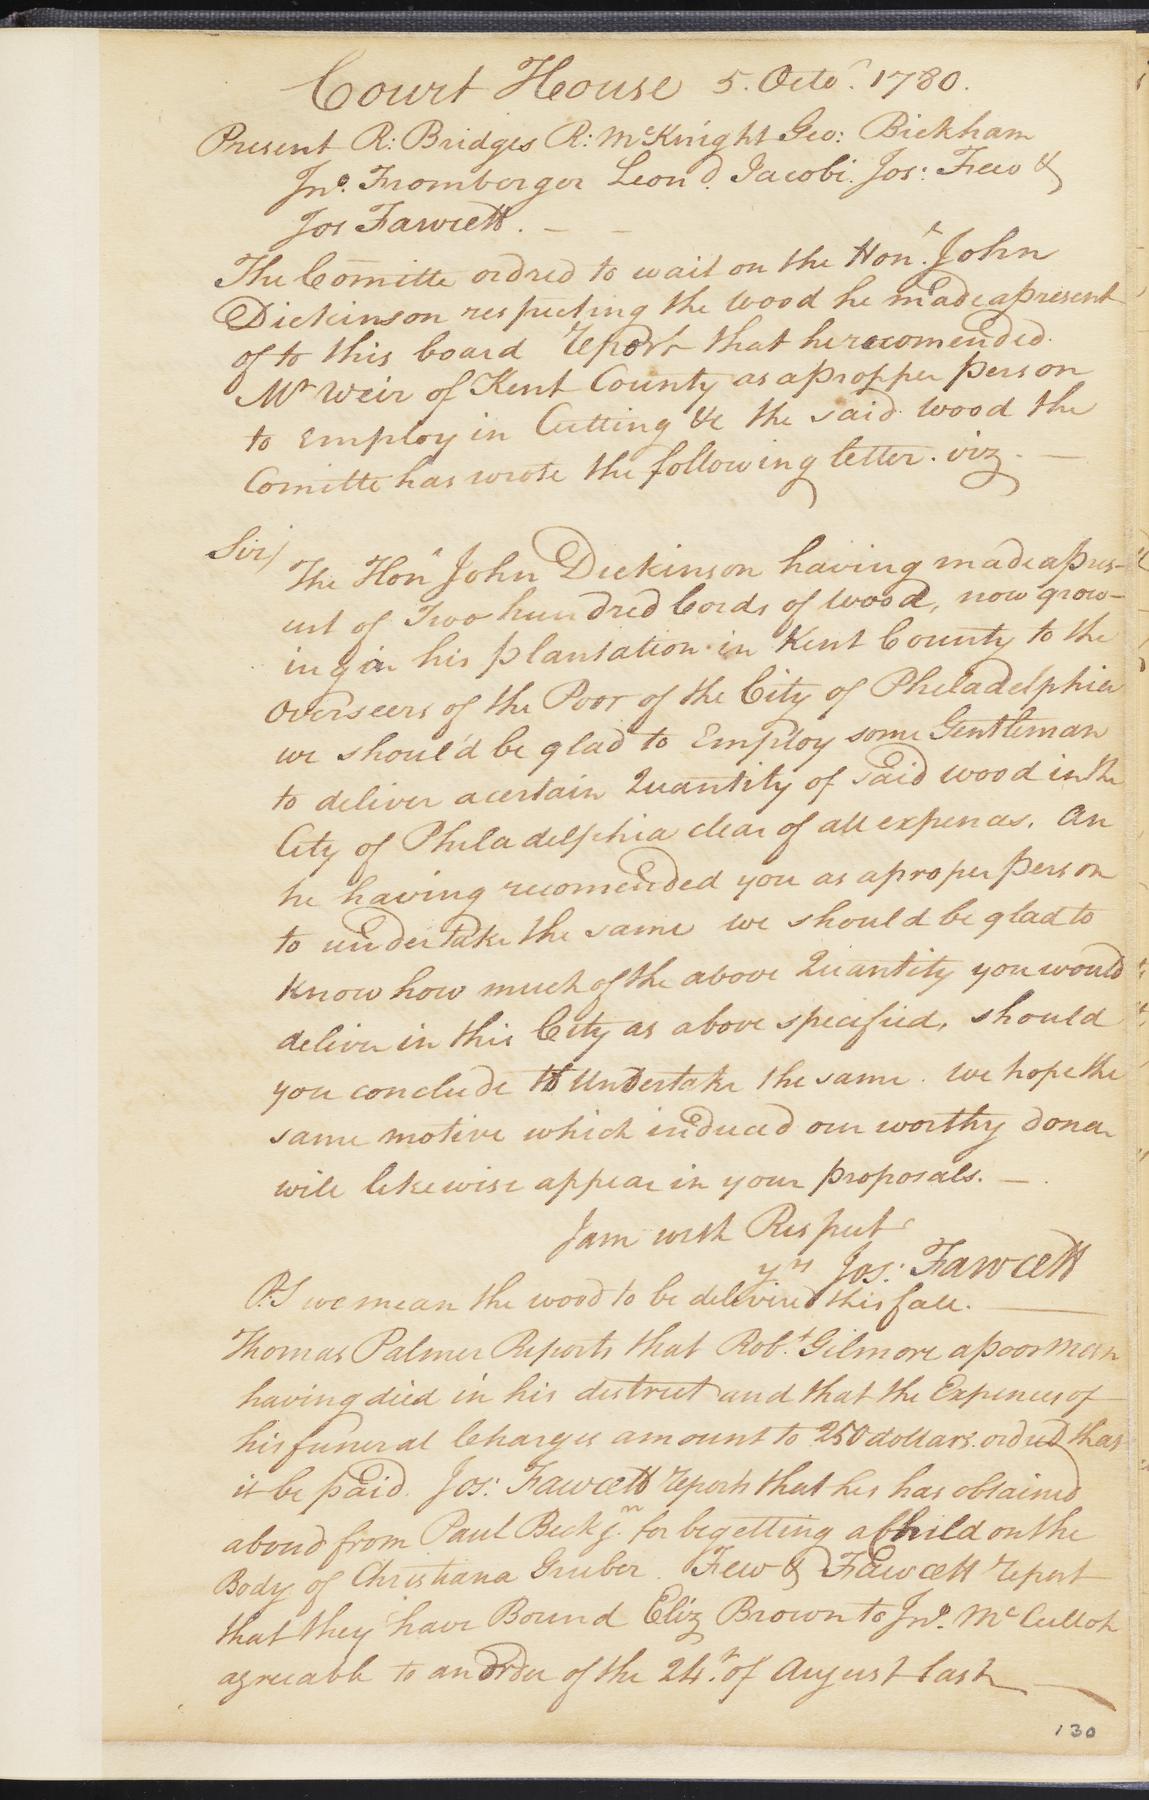 Court House 5. Octor. 1780.
Present R: Bridges R: McKnight Geo: Bickham
Jno. Fromberger Leond. Jacobi. Jos: Few &
Jos Fawcett. — —
The Comitte ordred to wait on the Honl. John
Dickinson respecting the wood he made apresent
of to this board report that he recomended.
Mr Weir of Kent County as apropper person
to Employ in Cutting &c the said wood the
Comitte has wrote the following letter. viz. —
Sir/
The Honl John Dickinson having made apres-
ent of Two hundred Cords of wood, now grow-
ing in his plantation in Kent County to the
Overseers of the Poor of the City of Philadelphia
we should be glad to Employ some Gentleman
to deliver acertain Quantity of said wood in the
City of Philadelphia clear of all expences. An
he having recomended you as aproper person
to undertake the same we should be glad to
Know how much of the above Quantity you would
deliver in this City as above specified, should
you conclude to Undertake the same. we hope the
same motive which induced our worthy doner
will likewise appear in your proposals. —
I am with Respect
yrs Jos: Fawcett
P:S we mean the wood to be delivired this fall. —
Thomas Palmer Reports that Robt. Gilmore apoor man
having died in his destrect and that the Expences of
his funeral Charges amount to 250 dollars. ordred that
it be paid. Jos: Fawcett reports that hes has obtained
abond from Paul Beck jn. for begetting a Child on the
Body of Christiana Gruber. Few & Fawcett report
that they have Bound Eliz Brown to Jno. McCulloh
agreeable to an order of the 24th. of August last —
130